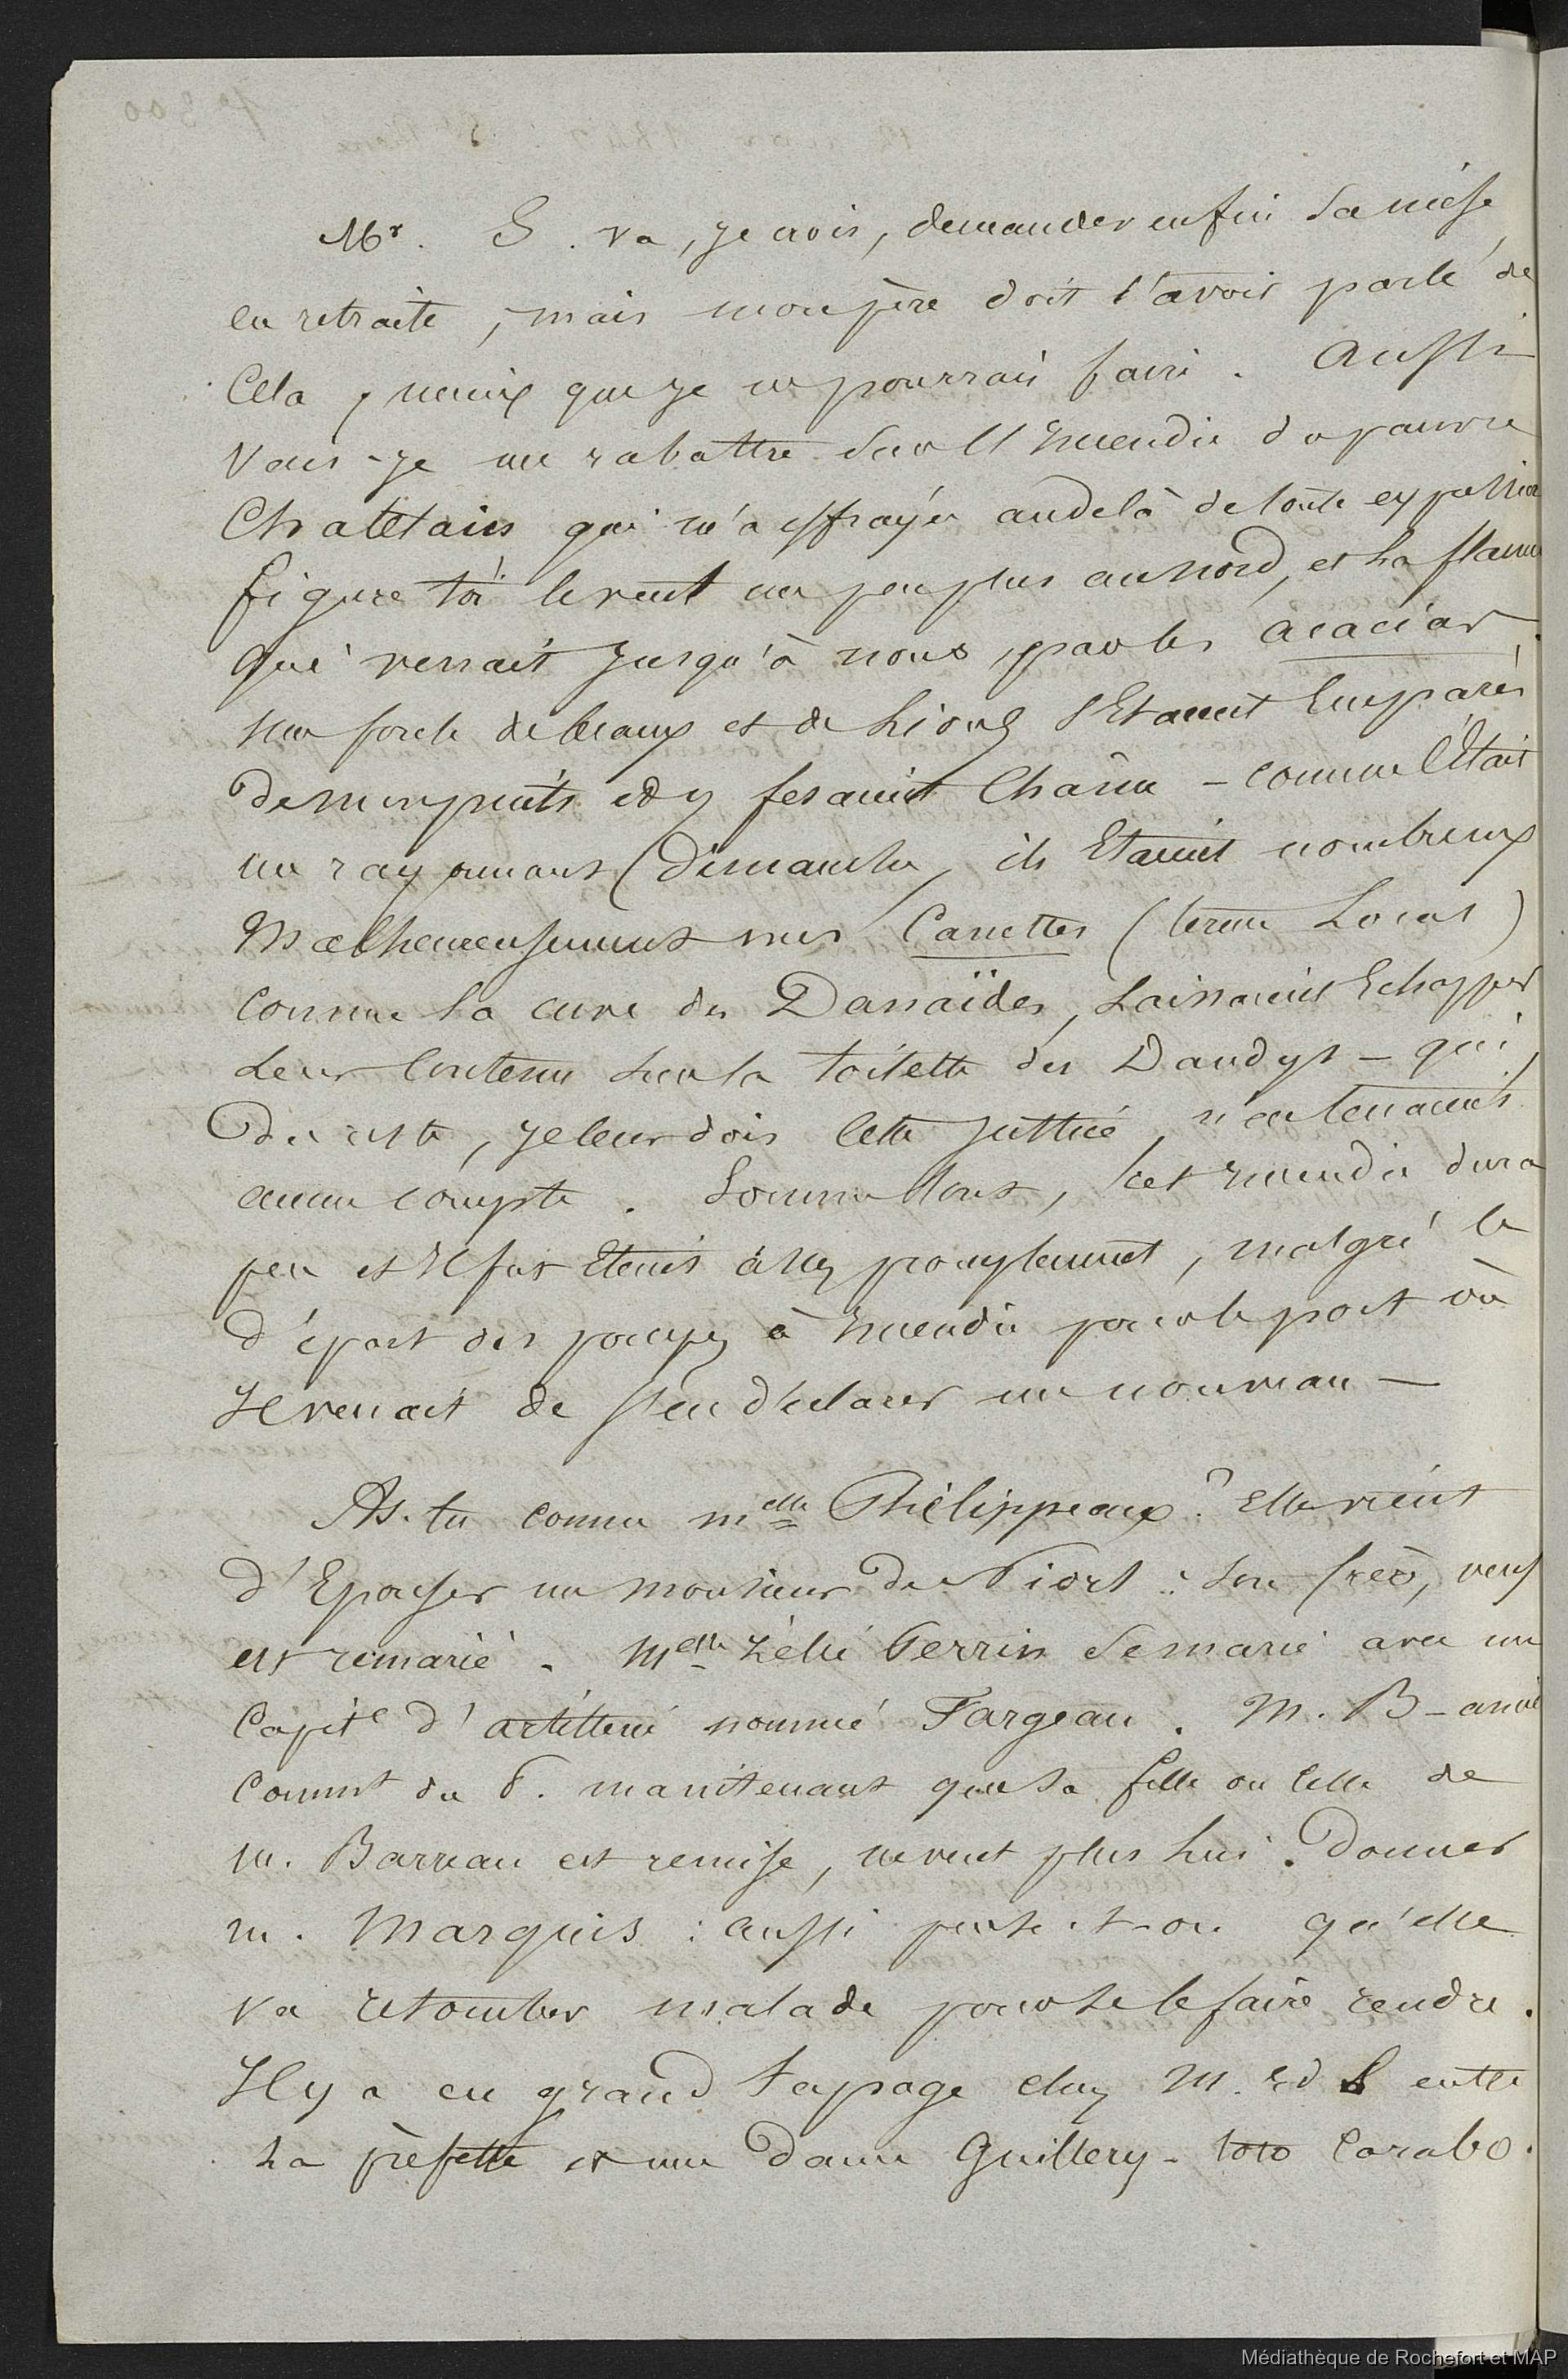 Mr. S. va, je crois, demander enfin sa mise
en retraite, mais mon père doit t'avoir parlé de
cela, mieux que je ne pourrais faire. Aussi
vais-je me rabattre sur l'incendie du pauvre
Chatelais qui m'a effrayée audelà de toute expression
figure toi le vent un peu plus au nord, et la flamme
qui venait jusqu'à nous par les acacias.
Une foule de beaux et de Lions s'étaient emparés
de mon puits et y fesaient chaîne - comme c'était
un dimanche, ils étaient nombreux
Malheureusement mes Canettes (terme Local)
comme la cuve des Danaïdes, laissaient échapper
leur contenu sur la toilette des Dandys - qui,
du reste, je leur dois cette justice, n'en tenaient
aucun compte. Somme tout, cet incendie dura
peu et il fut éteint assez promptement, malgré le
départ des pompes à incendie pour le port où
il venait de s'en déclarer un nouveau -
As-tu connu melle Philippeaux? Elle vient
d'épouser un monsieur de Niort : son frère, veuf
est remarié. Melle Zélie Perrin se marie avec un
Capite d'artillerie nommé Fargeau. M. B - ancien
Commt du P. maintenant que sa fille ou celle de
M. Barreau est remise, ne veut plus lui donner
M. Marquis : aussi pense-t-on qu'elle
va retomber malade pour se le faire rendre.
Il y a eu grand tapage chez M. et entre
la préfette et une dame Guillery - toto Carabo.
Médiathèque de Rochefort et MAP